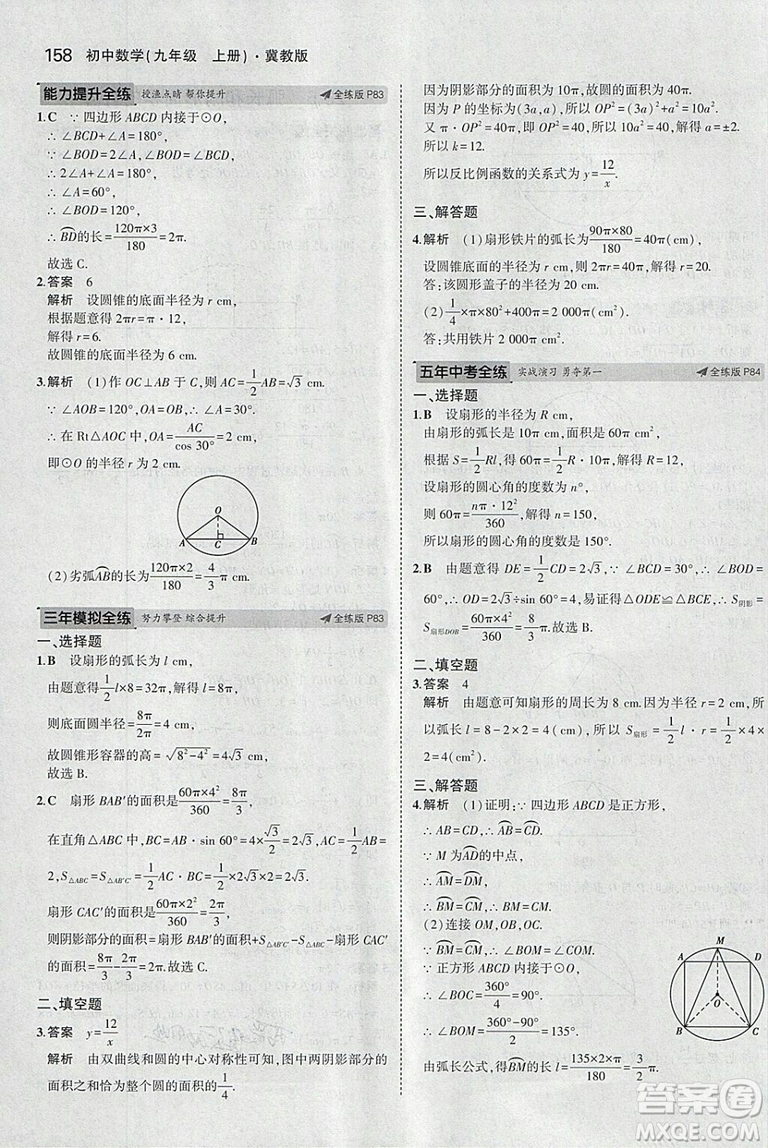 158 初中数学(九年级 上册)·冀教版
能力提升全练 授渔点睛 帮你提升 全练版 P83
1.C ∵ 四边形 ABCD 内接于⊙O,
∴ ∠BCD+∠A=180°,
∵ ∠BOD=2∠A,∠BOD=∠BCD,
∴ 2∠A+∠A=180°,
∴ ∠A=60°,
∴ ∠BOD=120°,
∴ BD的长=120π×3/180=2π.
故选 C.
2.答案 6
解析 设圆锥的底面半径为 r cm,
根据题意得 2πr=π·12,
解得 r=6.
故圆锥的底面半径为 6 cm.
3.解析 (1)作 OC⊥AB 于 C,则 AC=1/2AB=√3 cm.
∵ ∠AOB=120°,OA=OB,∴ ∠A=30°.
∴ 在 Rt△AOC 中,OA=AC/cos 30°=2 cm.
即⊙O 的半径为 2 cm.
O
A C B
(2)劣弧AB的长=120π×2/180=4π/3 cm.
三年模拟全练 努力攀登 综合提升 全练版 P83
一、选择题
1.B 设扇形的弧长为 l cm,
由题意得1/2l×8=32π,解得 l=8π,
则底面圆半径=8π/2π=4,
故圆锥形容器的高=√8²-4²=4√3 cm,
故选 B.
2.C 扇形 BAB′的面积是60π×4²/360=8π/3,
在直角△ABC 中,BC=AB·sin 60°=4×√3/2=2√3,AC=1/2AB=
2,S△ABC=S△AB′C′=1/2AC·BC=1/2×2√3×2=2√3.
扇形 CAC′的面积是60π×2²/360=2π/3,
则阴影部分的面积=扇形 BAB′的面积+S△AB′C′-S△ABC-扇形 CAC′
的面积=8π/3-2π/3=2π.故选 C.
二、填空题
3.答案 y=12/x
解析 由双曲线和圆的中心对称性可知,图中两阴影部分的
面积之和恰为整个圆的面积的1/4,
因为阴影部分的面积为 10π,所以圆的面积为 40π.
因为 P 的坐标为(3a,a),所以 OP²=(3a)²+a²=10a².
又 π·OP²=40π,即 OP²=40,所以 10a²=40,a=±2.
所以 k=12.
所以反比例函数的关系式为 y=12/x.
三、解答题
4.解析 (1)扇形铁片的弧长为90π×80/180=40π(cm),
设底面圆的半径为 r cm,则 2πr=40π,解得 r=20.
答:该圆形盖子的半径为 20 cm.
(2)1/4×π×80²+π×20²=2 000π(cm²).
答:共用铁皮 2 000π cm².
五年中考全练 实战演习 勇夺第一 全练版 P84
一、选择题
1.B 设扇形的半径为 R cm,
由扇形的弧长是 10π cm,面积是 60π cm²,
根据 S=1/2Rl,得1/2R·10π=60π,解得 R=12,
设扇形的圆心角的度数为 n°,
则 60π=nπ·12²/360,解得 n=150,
所以扇形的圆心角的度数是 150°.
2.B 由题意得 DE=1/2CD=2√3,∠DOE=2∠BCD=60°,
∴ OD=2√3÷√3/2=4,易证△ODE≌△BCE,∴ S阴影=
S扇形DOB=60π×4²/360=8π/3.
二、填空题
3.答案 4
解析 由题意可知扇形的周长为 8 cm.因为半径 r=2 cm,
所以弧长 l=8-2×2=4(cm),所以 S扇形=1/2·l·r=1/2×4×
2=4(cm²).
三、解答题
4.解析 (1)证明:∵ 四边形 ABCD 是正方形,
∴ AB=CD,∴ AB=CD,
∵ M为AD的中点,
∴ AM=DM,
∴ BM=CM,∴ BM=CM.
(2)连接 OM,OB,OC.
∵ BM=CM,∴ ∠BOM=∠COM,
∵ 正方形 ABCD 内接于⊙O,
∴ ∠BOC=360°/4=90°,
∴ ∠BOM=360°-90°/2=135°.
由弧长公式,得BM的长l=135×2×π/180=3π/2.
M
A D
O
B C
MXQE.COM